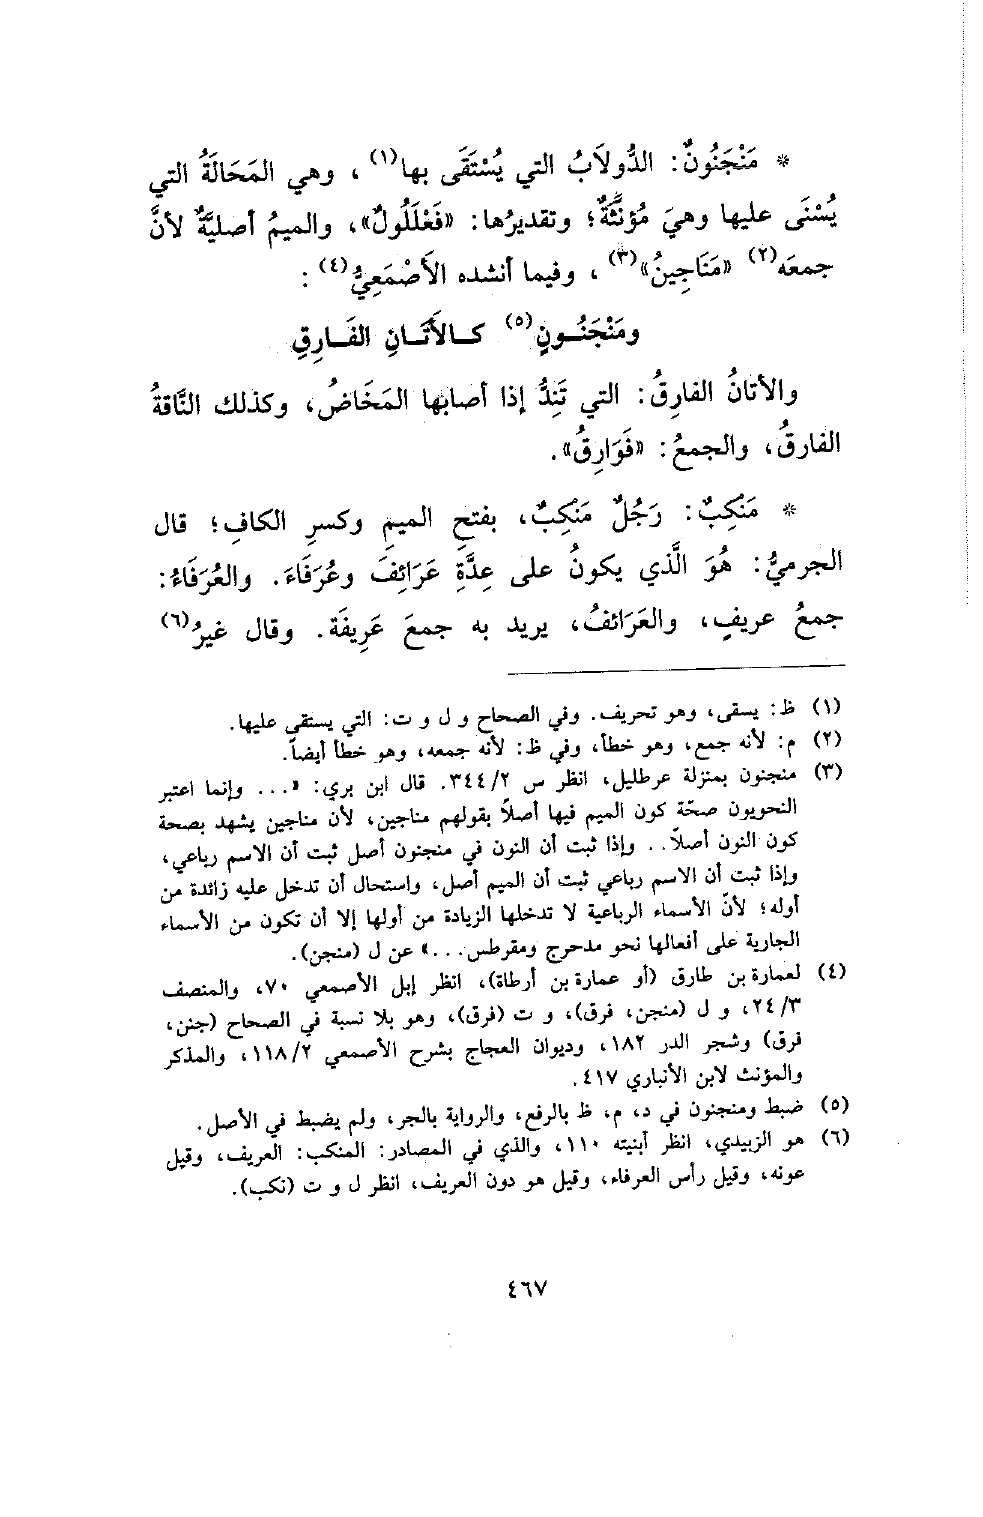 * مَنْجَنُونٌ: الدُّولاَبُ التي يُسْتَقَى بها(١)، وهي المَحَالَةُ التي
يُسْنَى عليها وهيَ مُؤنثَّةٌ؛ وتقديرُها: «فَعْلَلُولٌ»، والميمُ أصليَّةٌ لأنَّ
جمعَه(٢) «مَنَاجِينُ»(٣)، وفيما أنشده الأَصْمَعِيُّ(٤):
ومَنْجَنُـونٍ(٥) كـالأَتَـانِ الفَـارِقِ
والأتانُ الفارِقُ: التي تَنِدُّ إذا أصابها المَخَاضُ، وكذلك النَّاقةُ
الفارقُ، والجمعُ: «فَوَارِقُ».
* مَنْكِبٌ: رَجُلٌ مَنْكِبٌ، بفتحِ الميمِ وكسرِ الكافِ؛ قال
الجرميُّ: هُوَ الَّذي يكونُ على عِدَّةِ عَرَائِفَ وعُرَفَاءَ. والعُرَفَاءُ:
جمعُ عريفٍ، والعَرَائفُ، يريد به جمعَ عَرِيفَة. وقال غيرُ(٦)
(١) ظ: يسقى، وهو تحريف. وفي الصحاح و ل و ت: التي يستقى عليها.
(٢) م: لأنه جمع، وهو خطأ، وفي ظ: لأنه جمعه، وهو خطأ أيضاً.
(٣) منجنون بمنزلة عرطليل، انظر س ٣٤٤/٢. قال ابن بري: «... وإنما اعتبر
النحويون صحّة كون الميم فيها أصلاً بقولهم مناجين، لأن مناجين يشهد بصحة
كون النون أصلاً.. وإذا ثبت أن النون في منجنون أصل ثبت أن الاسم رباعي،
وإذا ثبت أن الاسم رباعي ثبت أن الميم أصل، واستحال أن تدخل عليه زائدة من
أوله؛ لأنّ الأسماء الرباعية لا تدخلها الزيادة من أولها إلا أن تكون من الأسماء
الجارية على أفعالها نحو مدحرج ومقرطس...» عن ل (منجن).
(٤) لعمارة بن طارق (أو عمارة بن أرطاة)، انظر إبل الأصمعي ٧٠، والمنصف
٢٤/٣، و ل (منجن، فرق)، و ت (فرق)، وهو بلا نسبة في الصحاح (جنن،
فرق) وشجر الدر ١٨٢، وديوان العجاج بشرح الأصمعي ١١٨/٢، والمذكر
والمؤنث لابن الأنباري ٤١٧.
(٥) ضبط ومنجنون في د، م، ظ بالرفع، والرواية بالجر، ولم يضبط في الأصل.
(٦) هو الزبيدي، انظر أبنيته ١١٠، والذي في المصادر: المنكب: العريف، وقيل
عونه، وقيل رأس العرفاء، وقيل هو دون العريف، انظر ل و ت (نكب).
٤٦٧